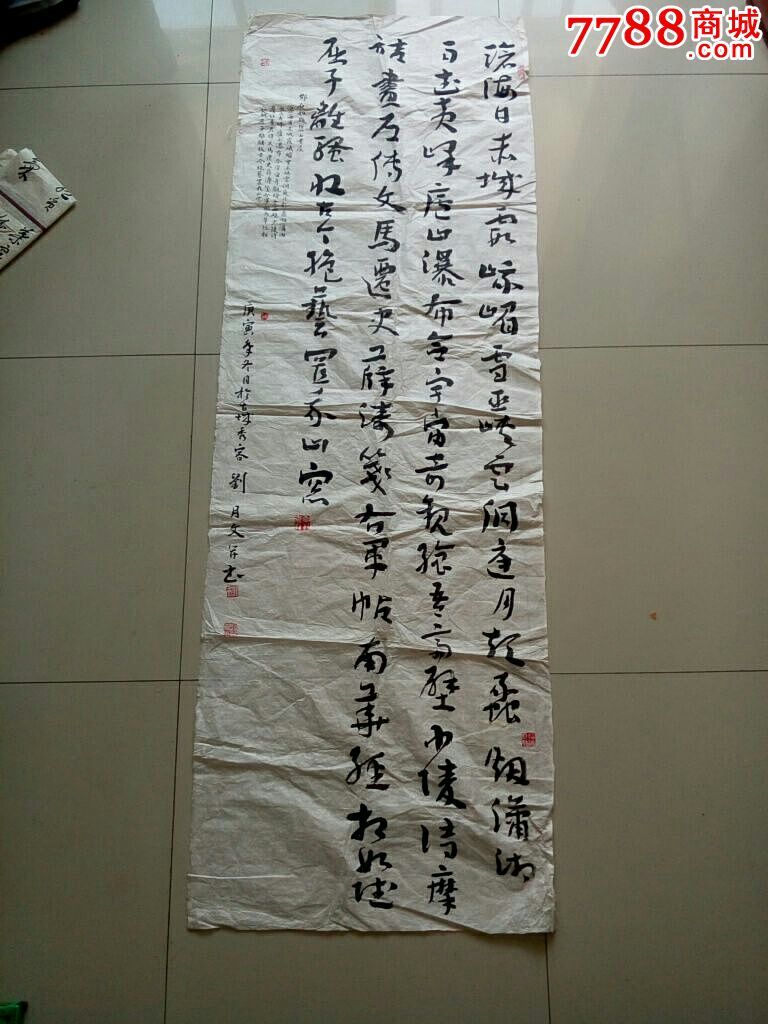 7788商城
滄海日赤城霞峨嵋雪巫峡雲洞庭月彭蠡烟瀟湘
雨武夷峰廬山瀑布合宇宙奇觀繪吾齋壁少陵詩摩
詰畫左傳文馬遷史薛濤箋右軍帖南華經相如賦
屈子離騷收古今絶藝置我山窓
庚寅年冬月於古城秀容劉月文并书